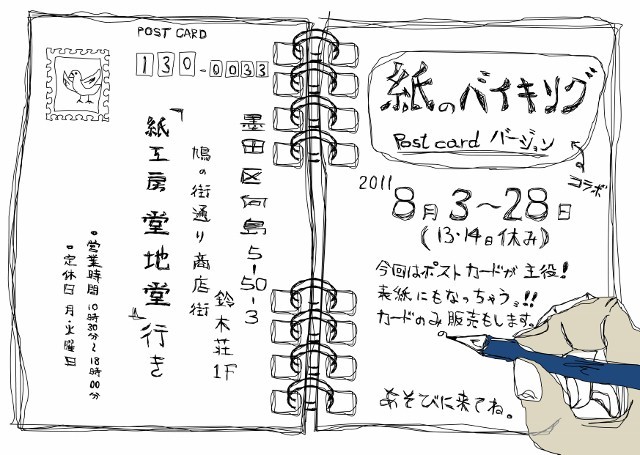 POST CARD
130-0033
墨田区向島5-50-3
鳩の街通り商店街
鈴木荘1F
「紙工房 堂地堂」行き
・営業時間 10時30分〜18時00分
・定休日 月・火曜日
紙のバイキング
Post card バージョン
コラボ
2011
8月3〜28日
(13・14日休み)
今回はポストカードが主役!
表紙にもなっちゃう!!
カードのみ販売もします。
あそびに来てね。